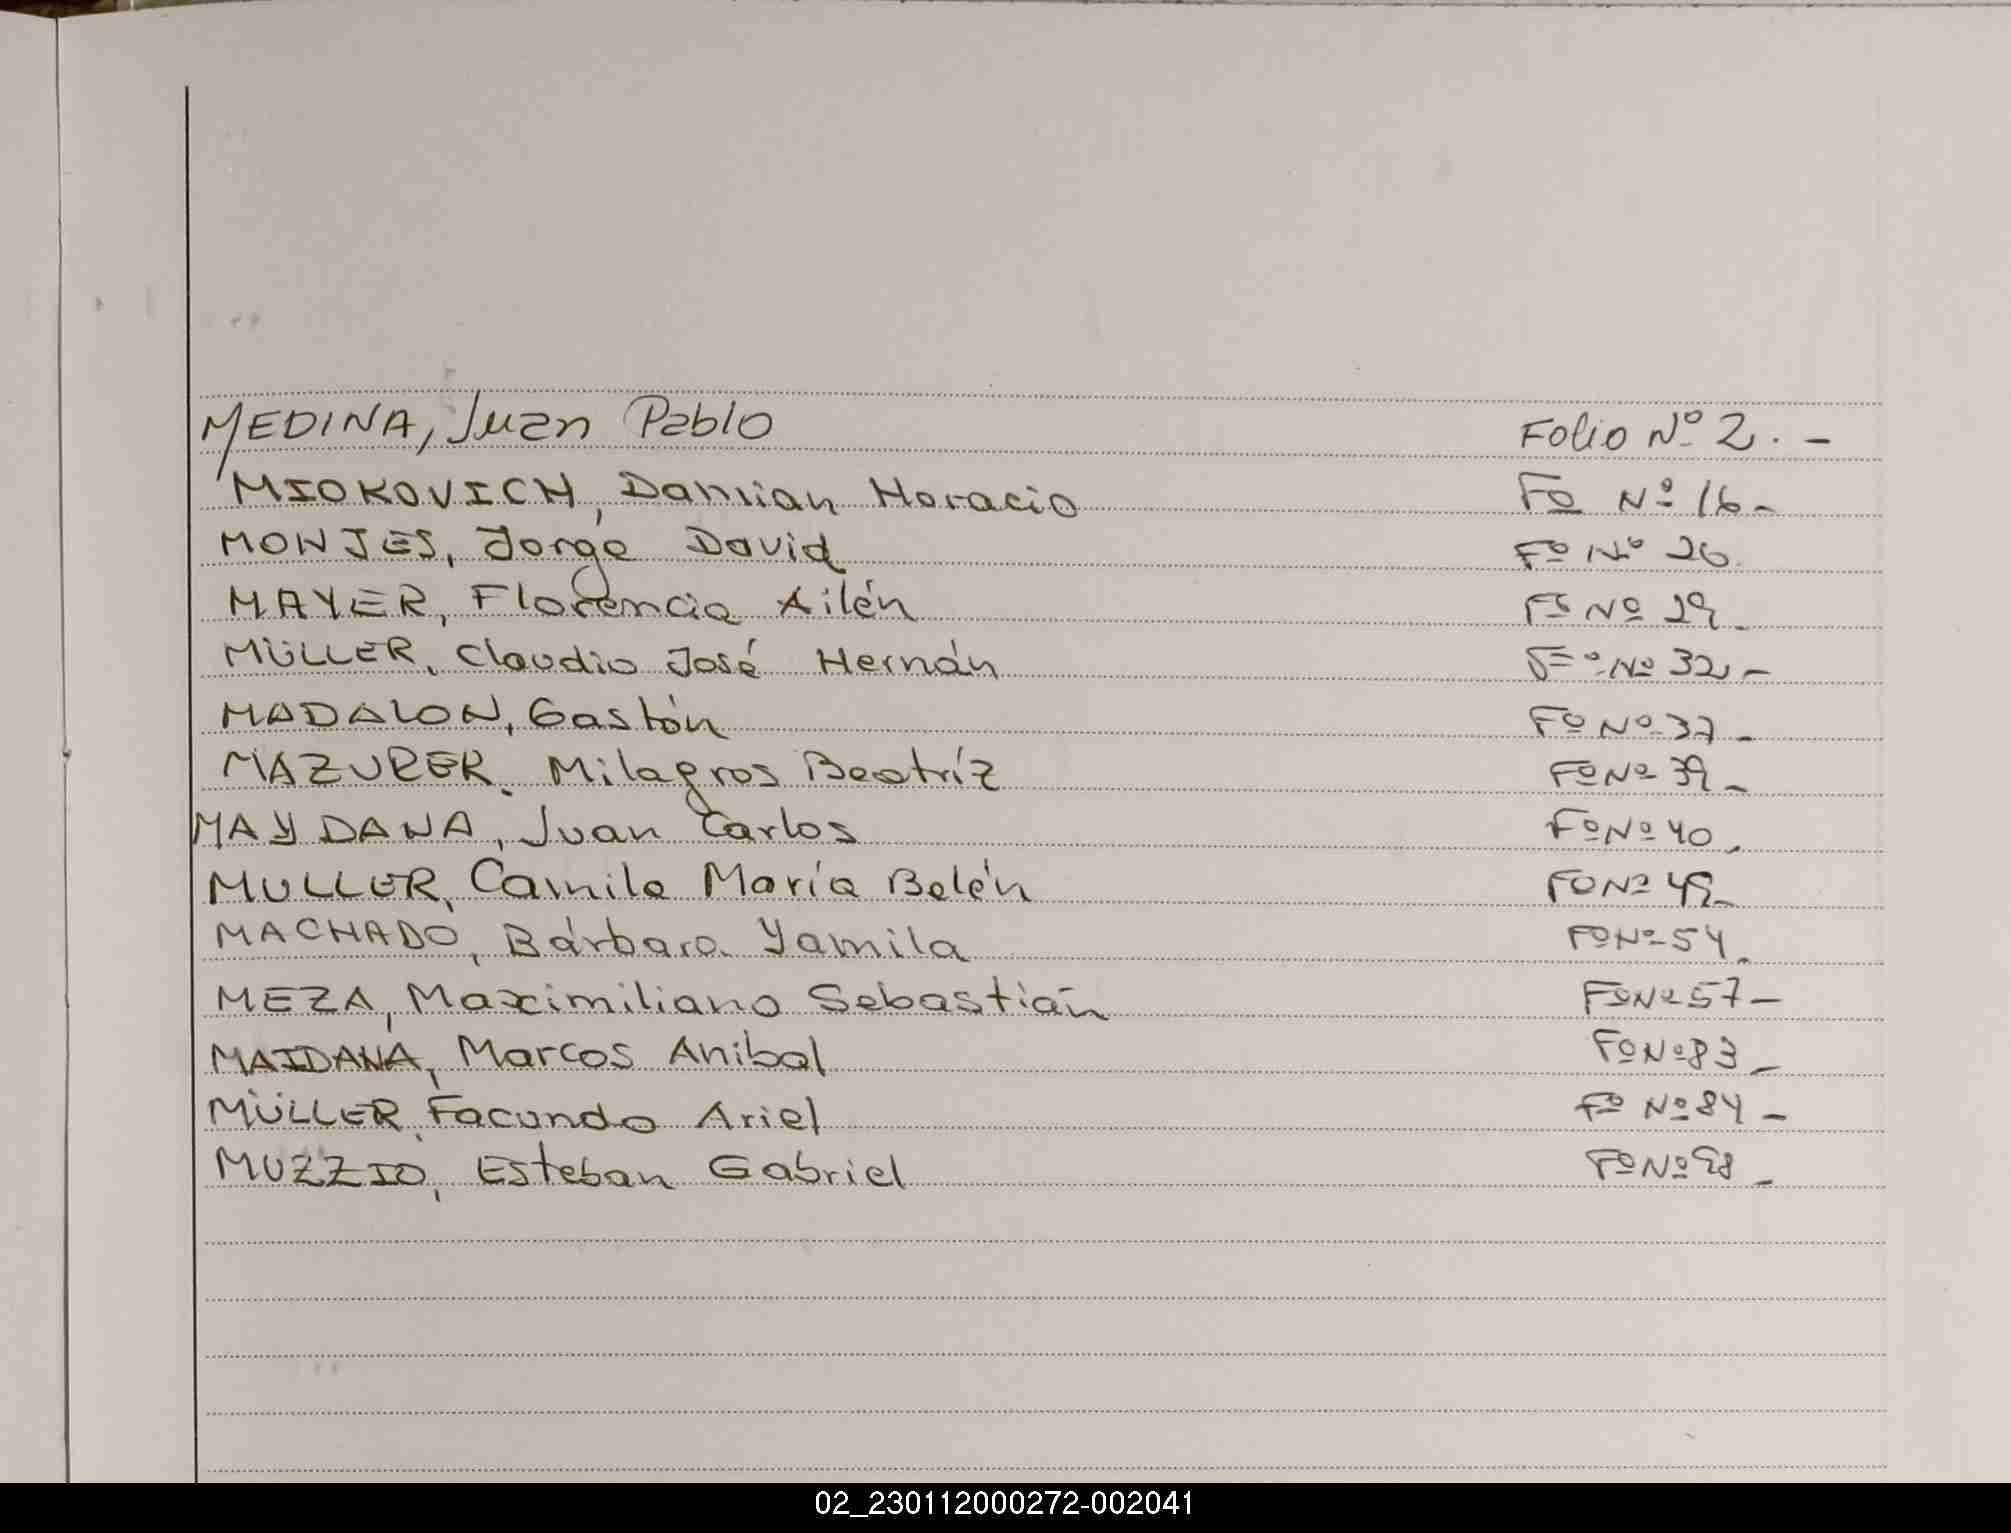 MEDINA, Juan Pablo Folio Nº 2. -
MIOKOVICH, Damian Horacio Fº Nº 16 -
MONJES, Jorge David Fº Nº 26.
MAYER, Florencia Ailén Fº Nº 29 -
MÜLLER, Claudio José Hernán Fº Nº 32 -
MADALON, Gastón Fº Nº 37 -
MAZURER, Milagros Beatríz Fº Nº 39 -
MAYDANA, Juan Carlos Fº Nº 40 -
MULLER, Camila María Belén Fº Nº 49 -
MACHADO, Bárbara Yamila Fº Nº 54 -
MEZA, Maximiliano Sebastián Fº Nº 57 -
MAIDANA, Marcos Anibal Fº Nº 83 -
MÜLLER, Facundo Ariel Fº Nº 84 -
MUZZIO, Esteban Gabriel Fº Nº 98 -
02_230112000272-002041